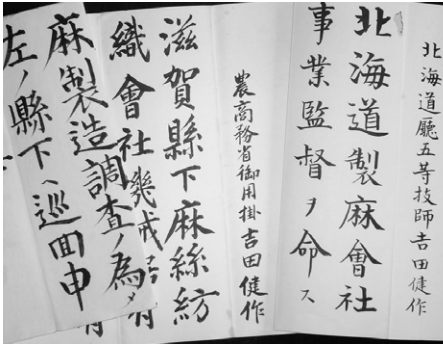 北海道廳五等技師吉田健作
北海道製麻會社
事業監督ヲ命ス
農商務省御用掛吉田健作
滋賀縣下麻絲紡
織會社機械
麻製造調査ノ為メ
左ノ縣下ヘ巡回申